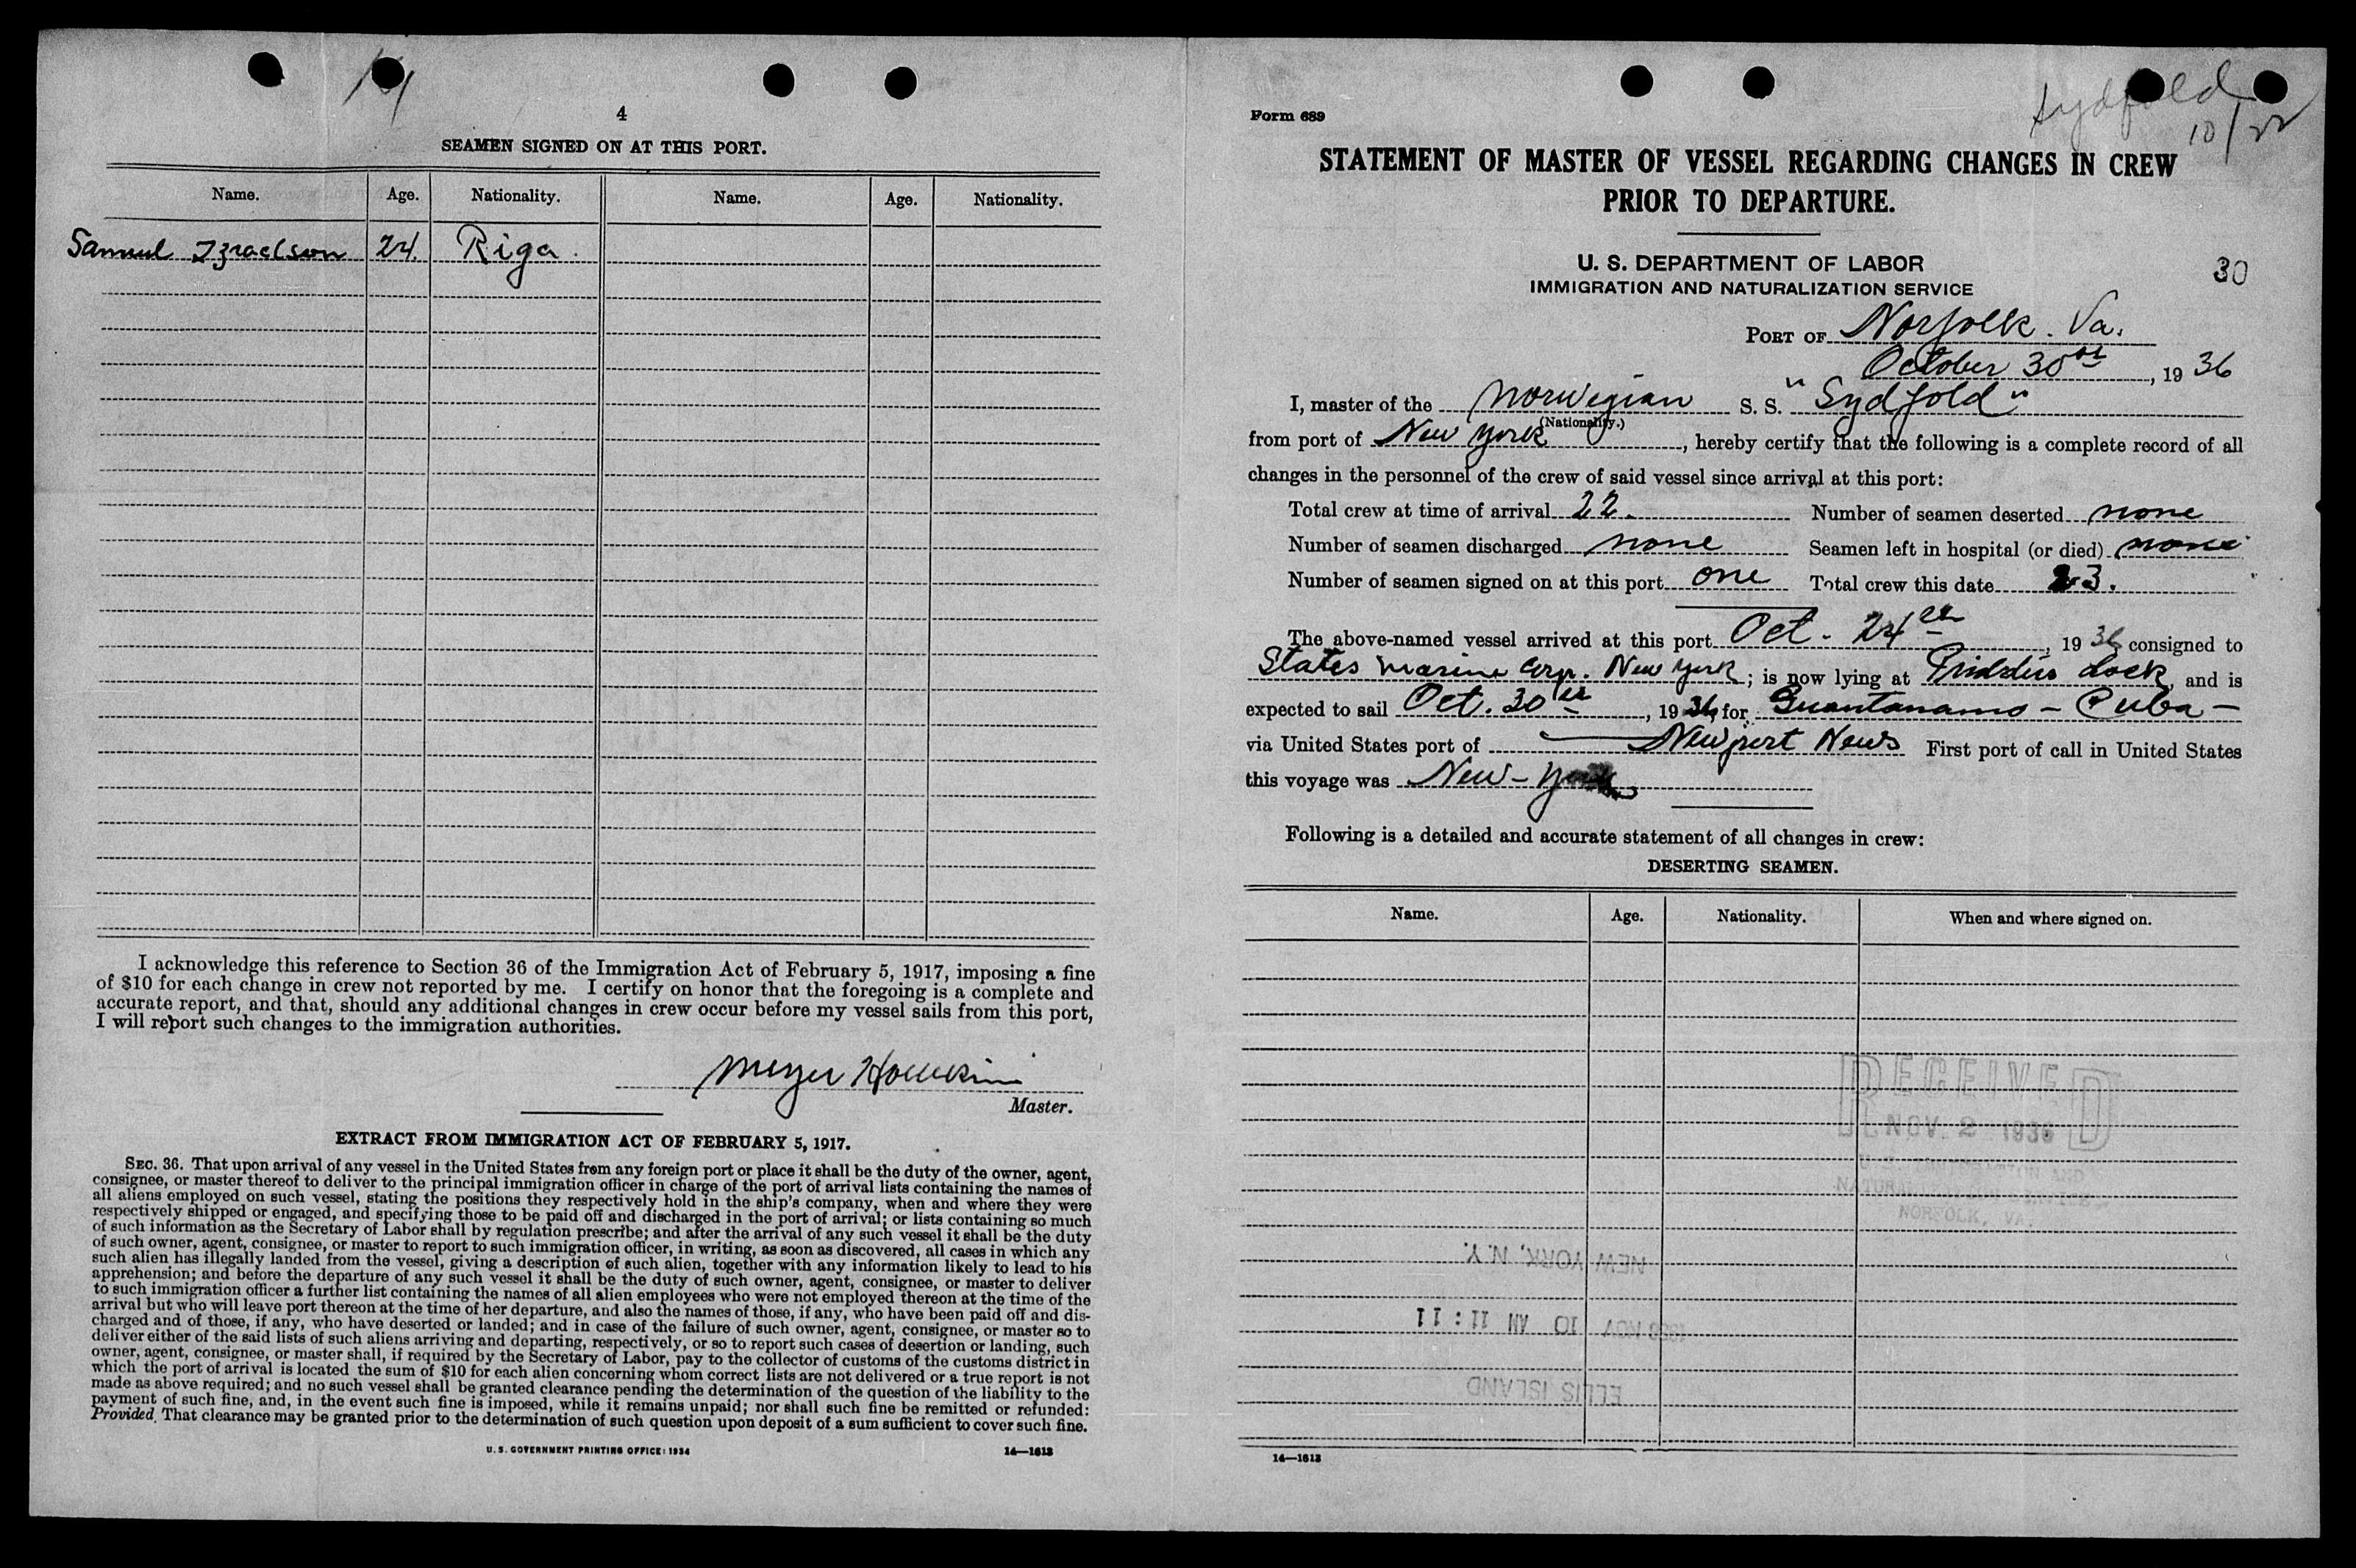 4
SEAMEN SIGNED ON AT THIS PORT.
Name. Age. Nationality. Name. Age. Nationality.
Samuel Izraelson 24. Riga.
I acknowledge this reference to Section 36 of the Immigration Act of February 5, 1917, imposing a fine
of $10 for each change in crew not reported by me. I certify on honor that the foregoing is a complete and
accurate report, and that, should any additional changes in crew occur before my vessel sails from this port,
I will report such changes to the immigration authorities.
Meyer
Master.
EXTRACT FROM IMMIGRATION ACT OF FEBRUARY 5, 1917.
SEC. 36. That upon arrival of any vessel in the United States from any foreign port or place it shall be the duty of the owner, agent,
consignee, or master thereof to deliver to the principal immigration officer in charge of the port of arrival lists containing the names of
all aliens employed on such vessel, stating the positions they respectively hold in the ship's company, when and where they were
respectively shipped or engaged, and specifying those to be paid off and discharged in the port of arrival; or lists containing so much
of such information as the Secretary of Labor shall by regulation prescribe; and after the arrival of any such vessel it shall be the duty
of such owner, agent, consignee, or master to report to such immigration officer, in writing, as soon as discovered, all cases in which any
such alien has illegally landed from the vessel, giving a description of such alien, together with any information likely to lead to his
apprehension; and before the departure of any such vessel it shall be the duty of such owner, agent, consignee, or master to deliver
to such immigration officer a further list containing the names of all alien employees who were not employed thereon at the time of the
arrival but who will leave port thereon at the time of her departure, and also the names of those, if any, who have been paid off and dis-
charged and of those, if any, who have deserted or landed; and in case of the failure of such owner, agent, consignee, or master so to
deliver either of the said lists of such aliens arriving and departing, respectively, or so to report such cases of desertion or landing, such
owner, agent, consignee, or master shall, if required by the Secretary of Labor, pay to the collector of customs of the customs district in
which the port of arrival is located the sum of $10 for each alien concerning whom correct lists are not delivered or a true report is not
made as above required; and no such vessel shall be granted clearance pending the determination of the question of the liability to the
payment of such fine, and, in the event such fine is imposed, while it remains unpaid; nor shall such fine be remitted or refunded:
Provided, That clearance may be granted prior to the determination of such question upon deposit of a sum sufficient to cover such fine.
U. S. GOVERNMENT PRINTING OFFICE: 1934 14—1613
Sydfold
10/22
Form 689
STATEMENT OF MASTER OF VESSEL REGARDING CHANGES IN CREW
PRIOR TO DEPARTURE.
U. S. DEPARTMENT OF LABOR
IMMIGRATION AND NATURALIZATION SERVICE
30
PORT OF Norfolk. Va.
October 30th, 1936
I, master of the Norwegian S. S. "Sydfold"
(Nationality.)
from port of New York, hereby certify that the following is a complete record of all
changes in the personnel of the crew of said vessel since arrival at this port:
Total crew at time of arrival 22. Number of seamen deserted none
Number of seamen discharged none Seamen left in hospital (or died) none
Number of seamen signed on at this port one Total crew this date 23.
The above-named vessel arrived at this port Oct. 24th, 1936 consigned to
States Marine Corp. New York; is now lying at Dock, and is
expected to sail Oct. 30th, 1936, for Guantanamo - Cuba -
via United States port of Newport News First port of call in United States
this voyage was New-York
Following is a detailed and accurate statement of all changes in crew:
DESERTING SEAMEN.
Name. Age. Nationality. When and where signed on.
RECEIVED
NOV. 2 1936
U.S. IMMIGRATION AND
NATURALIZATION SERVICE
NORFOLK, VA.
NEW YORK, N.Y.
1936 NOV 10 AM 11:11
ELLIS ISLAND
14—1613